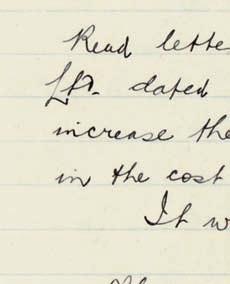 Read lette
Ltd. dated
increase the
in the cost
It w